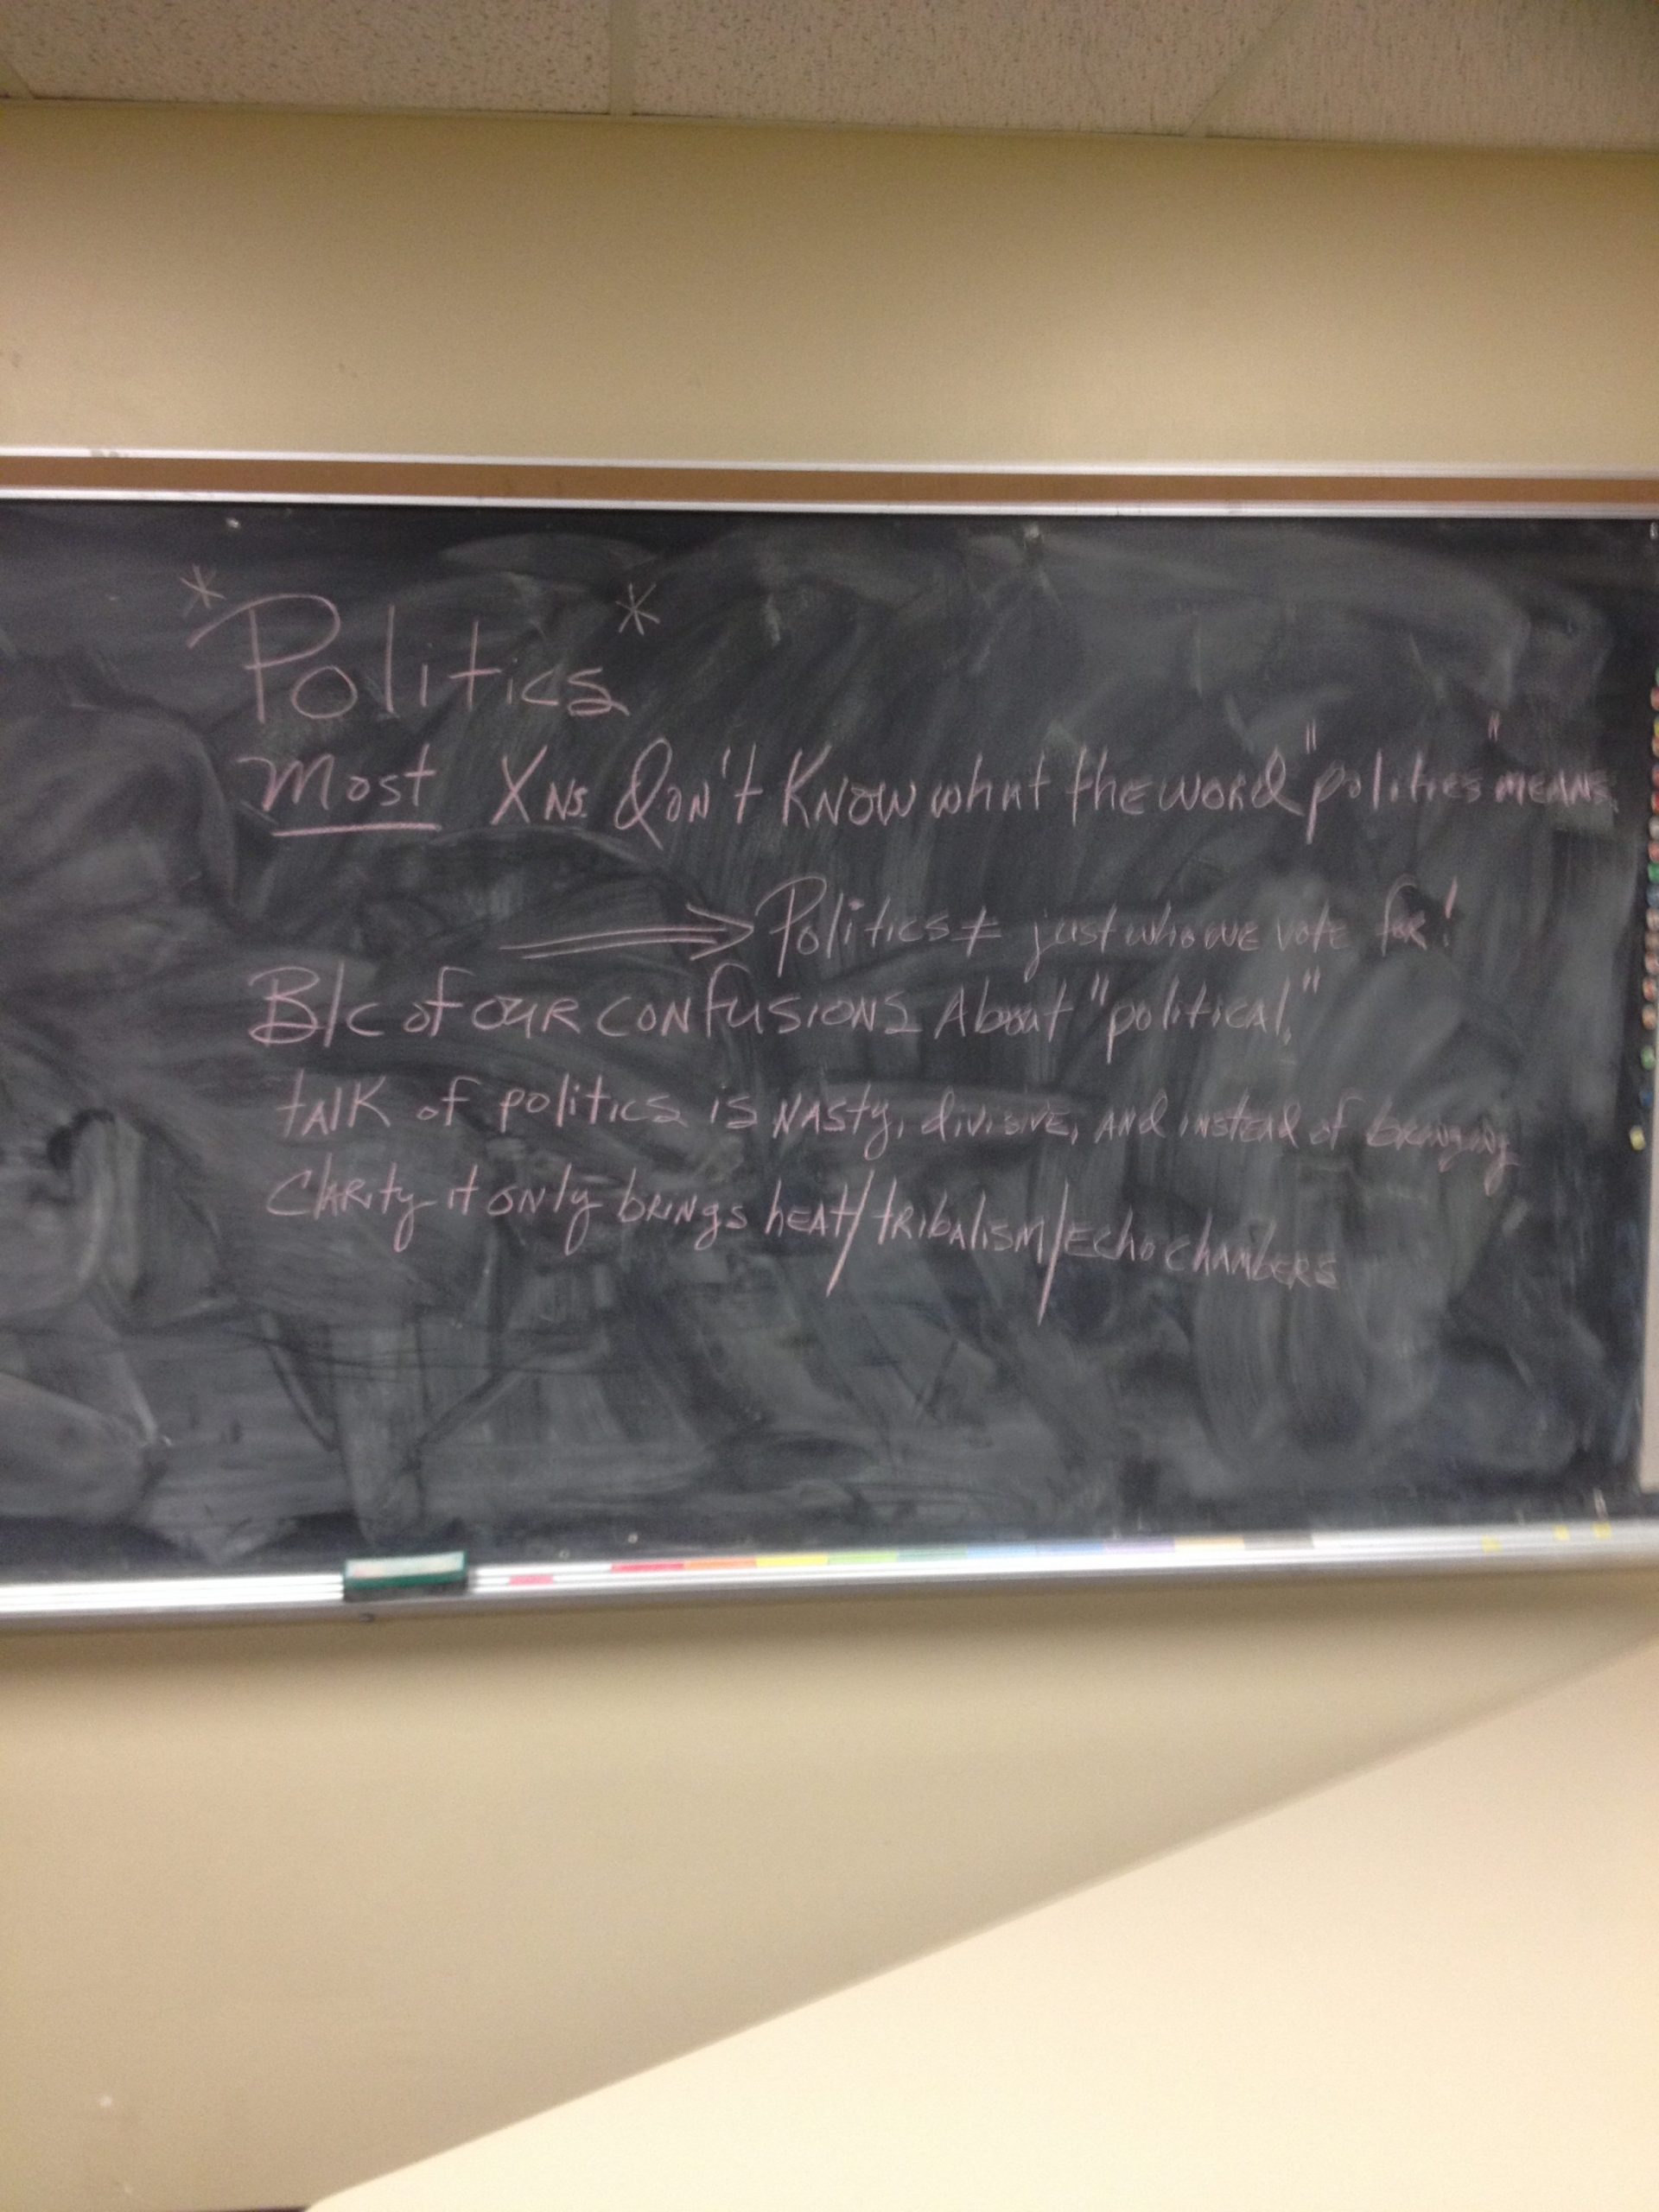 *Politics*
Most Xns. Don't Know what the word "politics" means.
⟹ Politics ≠ just who we vote for!
B/c of our confusions About "political,"
talk of politics is nasty, divisive, and instead of bringing
Clarity it only brings heat/tribalism/echo chambers